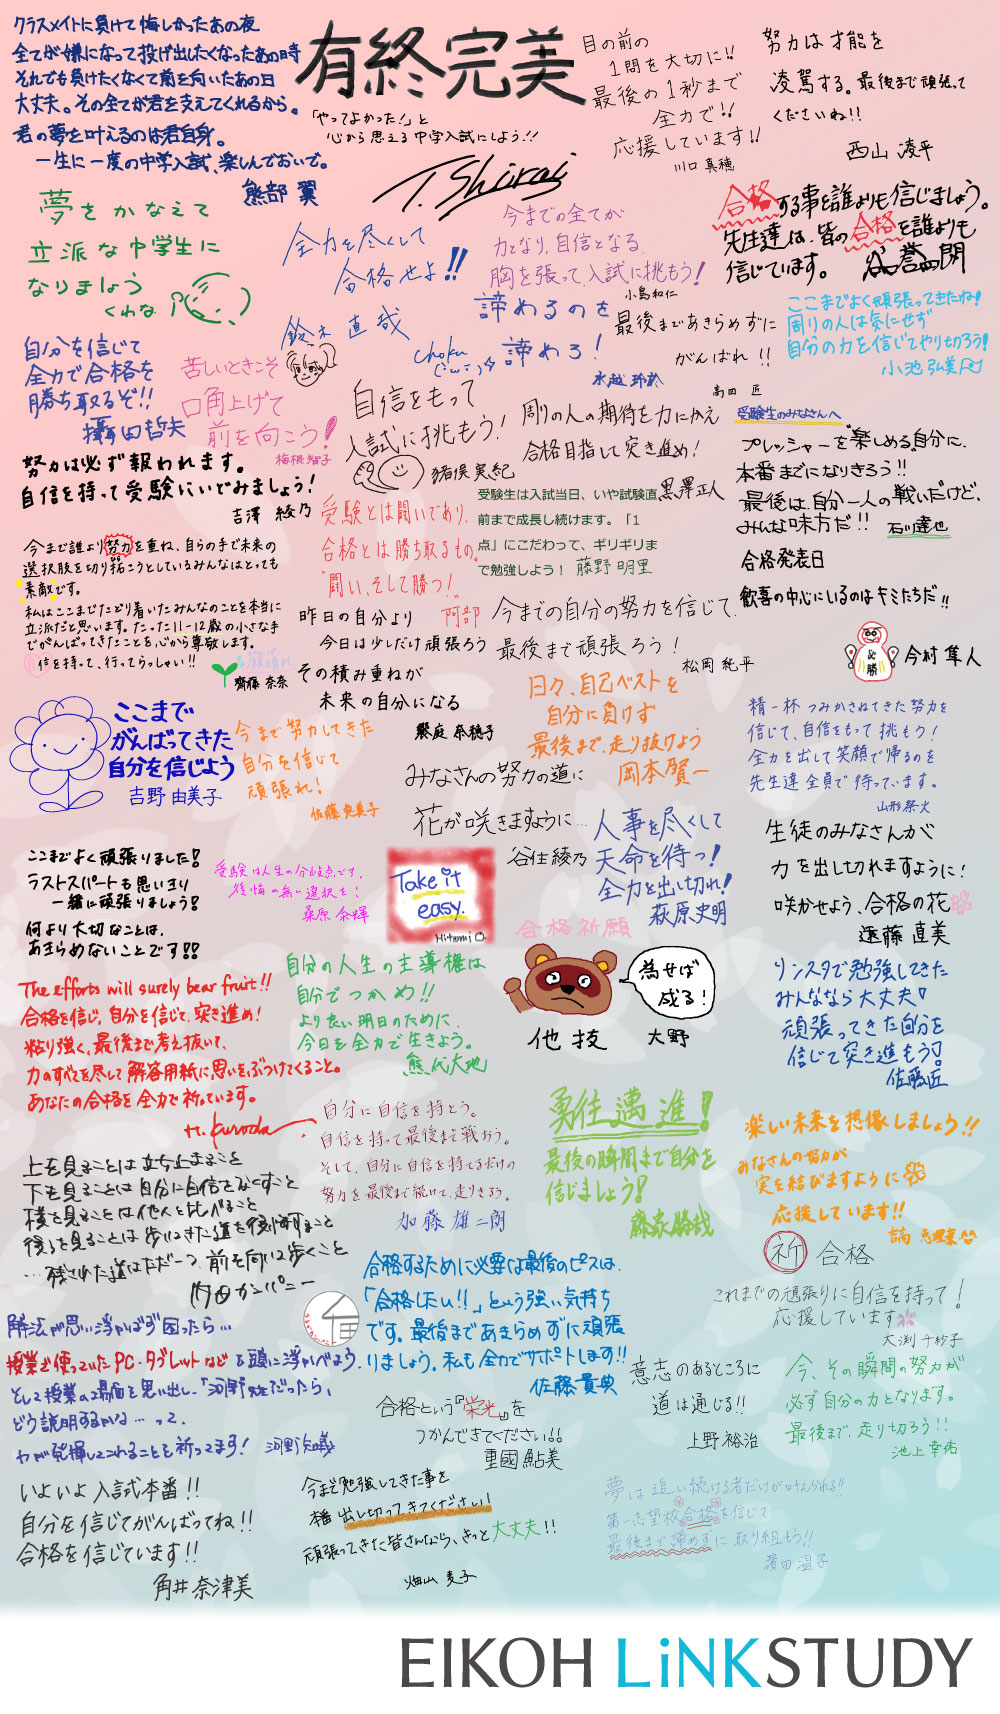 クラスメイトに負けて悔しかったあの夜
全てが嫌になって投げ出したくなったあの時
それでも負けたくなくて前を向いたあの日
大丈夫。その全てが君を支えてくれるから。
君の夢を叶えるのは君自身。
一生に一度の中学入試、楽しんでおいで。
熊部 翼
有終完美
「やってよかった!」と
心から思える中学入試にしよう!!
T. Shirai
目の前の
1問を大切に!!
最後の1秒まで
全力で!!
応援しています!!
川口 真穂
努力は才能を
凌駕する。最後まで頑張って
くださいね!!
西山 凌平
夢をかなえて
立派な中学生に
なりましょう
くわな
全力を尽くして
合格せよ!!
鈴木 直哉
今までの全てが
力となり、自信となる。
胸を張って、入試に挑もう!
小島和仁
合格する事を誰よりも信じましょう。
先生達は、皆の合格を誰よりも
信じています。
自分を信じて
全力で合格を
勝ち取るぞ!!
攝田哲矢
苦しいときこそ
口角上げて
前を向こう!
梅根智子
諦めるのを
諦めろ!
水越 玲於
最後まであきらめずに
がんばれ!!
高田 匠
ここまでよく頑張ってきたね!
周りの人は気にせず
自分の力を信じてやり切ろう!
小池 弘美
努力は必ず報われます。
自信を持って受験にいどみましょう!
吉澤 綾乃
自信をもって
入試に挑もう!
猪俣 実紀
周りの人の期待を力にかえ
合格目指して突き進め!
黒澤正人
受験生のみなさんへ
プレッシャーを楽しめる自分に、
本番までになりきろう!!
最後は、自分一人の戦いだけど、
みんな味方だ!! 石川達也
受験とは闘いであり、
合格とは勝ち取るもの。
闘い、そして勝つ!
阿部
受験生は入試当日、いや試験直
前まで成長し続けます。「1
点」にこだわって、ギリギリま
で勉強しよう! 藤野 明里
今まで誰より努力を重ね、自らの手で未来の
選択肢を切り拓こうとしているみんなはとっても
素敵です。
私はここまでたどり着いたみんなのことを本当に
立派だと思います。たった11-12歳の小さな手
でがんばってきたことを、心から尊敬します。
自信を持って、行ってらっしゃい!!
齊藤 奈奈
昨日の自分より
今日は少しだけ頑張ろう
その積み重ねが
未来の自分になる
饗庭 奈穂子
今までの自分の努力を信じて、
最後まで頑張ろう!
松岡 純平
合格発表日
歓喜の中心にいるのはキミたちだ!!
必勝
今村 隼人
ここまで
がんばってきた
自分を信じよう
吉野 由美子
今まで努力してきた
自分を信じて
頑張れ!
佐藤 恵美子
日々、自己ベストを
自分に負けず
最後まで、走り抜けよう
岡本 賢一
精一杯つみかさねてきた努力を
信じて、自信をもって挑もう!
全力を出して笑顔で帰るのを
先生達全員で待っています。
みなさんの努力の道に
花が咲きますように…
谷住 綾乃
人事を尽くして
天命を待つ!
全力を出し切れ!
萩原史明
生徒のみなさんが
力を出し切れますように!
咲かせよう、合格の花
遠藤 直美
ここまでよく頑張りました!
ラストスパートも思いきり
一緒に頑張りましょう!
何より大切なことは、
あきらめないことです!!
受験は人生の分岐点です。
後悔の無い選択を!
桑原 奈輝
Take it
easy.
Hitomi
合格祈願
為せば
成る!
他技
大野
The efforts will surely bear fruit!!
合格を信じ、自分を信じて、突き進め!
粘り強く、最後まで考え抜いて、
力のすべてを尽して解答用紙に思いをぶつけてくること。
あなたの合格を全力で祈っています。
H. Kuroda
自分の人生の主導権は
自分でつかめ!!
より良い明日のために、
今日を全力で生きよう。
熊代大地
リンスタで勉強してきた
みんななら大丈夫!
頑張ってきた自分を
信じて突き進もう!
佐藤匠
自分に自信を持とう。
自信を持って最後まで戦おう。
そして、自分に自信を持てるだけの
努力を最後まで続けて、走りきろう。
加藤 雄二朗
勇往邁進!
最後の瞬間まで自分を
信じましょう!
藤永勝哉
楽しい未来を想像しましょう!!
みなさんの努力が
実を結びますように
応援しています!!
上を見ることは立ち止まること
下を見ることは自分に自信をなくすこと
横を見ることは他人と比べること
後ろを見ることは歩いてきた道を後悔すること
…残された道はただ一つ、前を向いて歩くこと
内田カンパニー
合格するために必要な最後のピースは、
「合格したい!!」という強い気持ち
です。最後まであきらめずに頑張
りましょう。私も全力でサポートします!!
佐藤 貴典
祈 合格
これまでの頑張りに自信を持って!
応援しています
大渕 千紗子
解法が思い浮かばず困ったら…
授業で使っていたPC・タブレットなどを頭に浮かべよう。
そして授業の場面を思い出し、「河野先生だったら、
どう説明するかな…って、
力が発揮してくれることを祈ってます!
合格という『栄光』を
つかんできてください!!
重國 鮎美
意志のあるところに
道は通じる!!
上野 裕治
今、その瞬間の努力が
必ず自分の力となります。
最後まで、走り切ろう!!
池上 幸祐
いよいよ入試本番!!
自分を信じてがんばってね!!
合格を信じています!!
角井 奈津美
今まで勉強してきた事を
本番出し切ってきてください!
頑張ってきた皆さんなら、きっと大丈夫!!
畑山 麦子
夢は追い続ける者だけが叶えられる!!
第一志望校合格を信じて、
最後まで諦めずに取り組もう!!
濱田 温子
EIKOH LiNKSTUDY